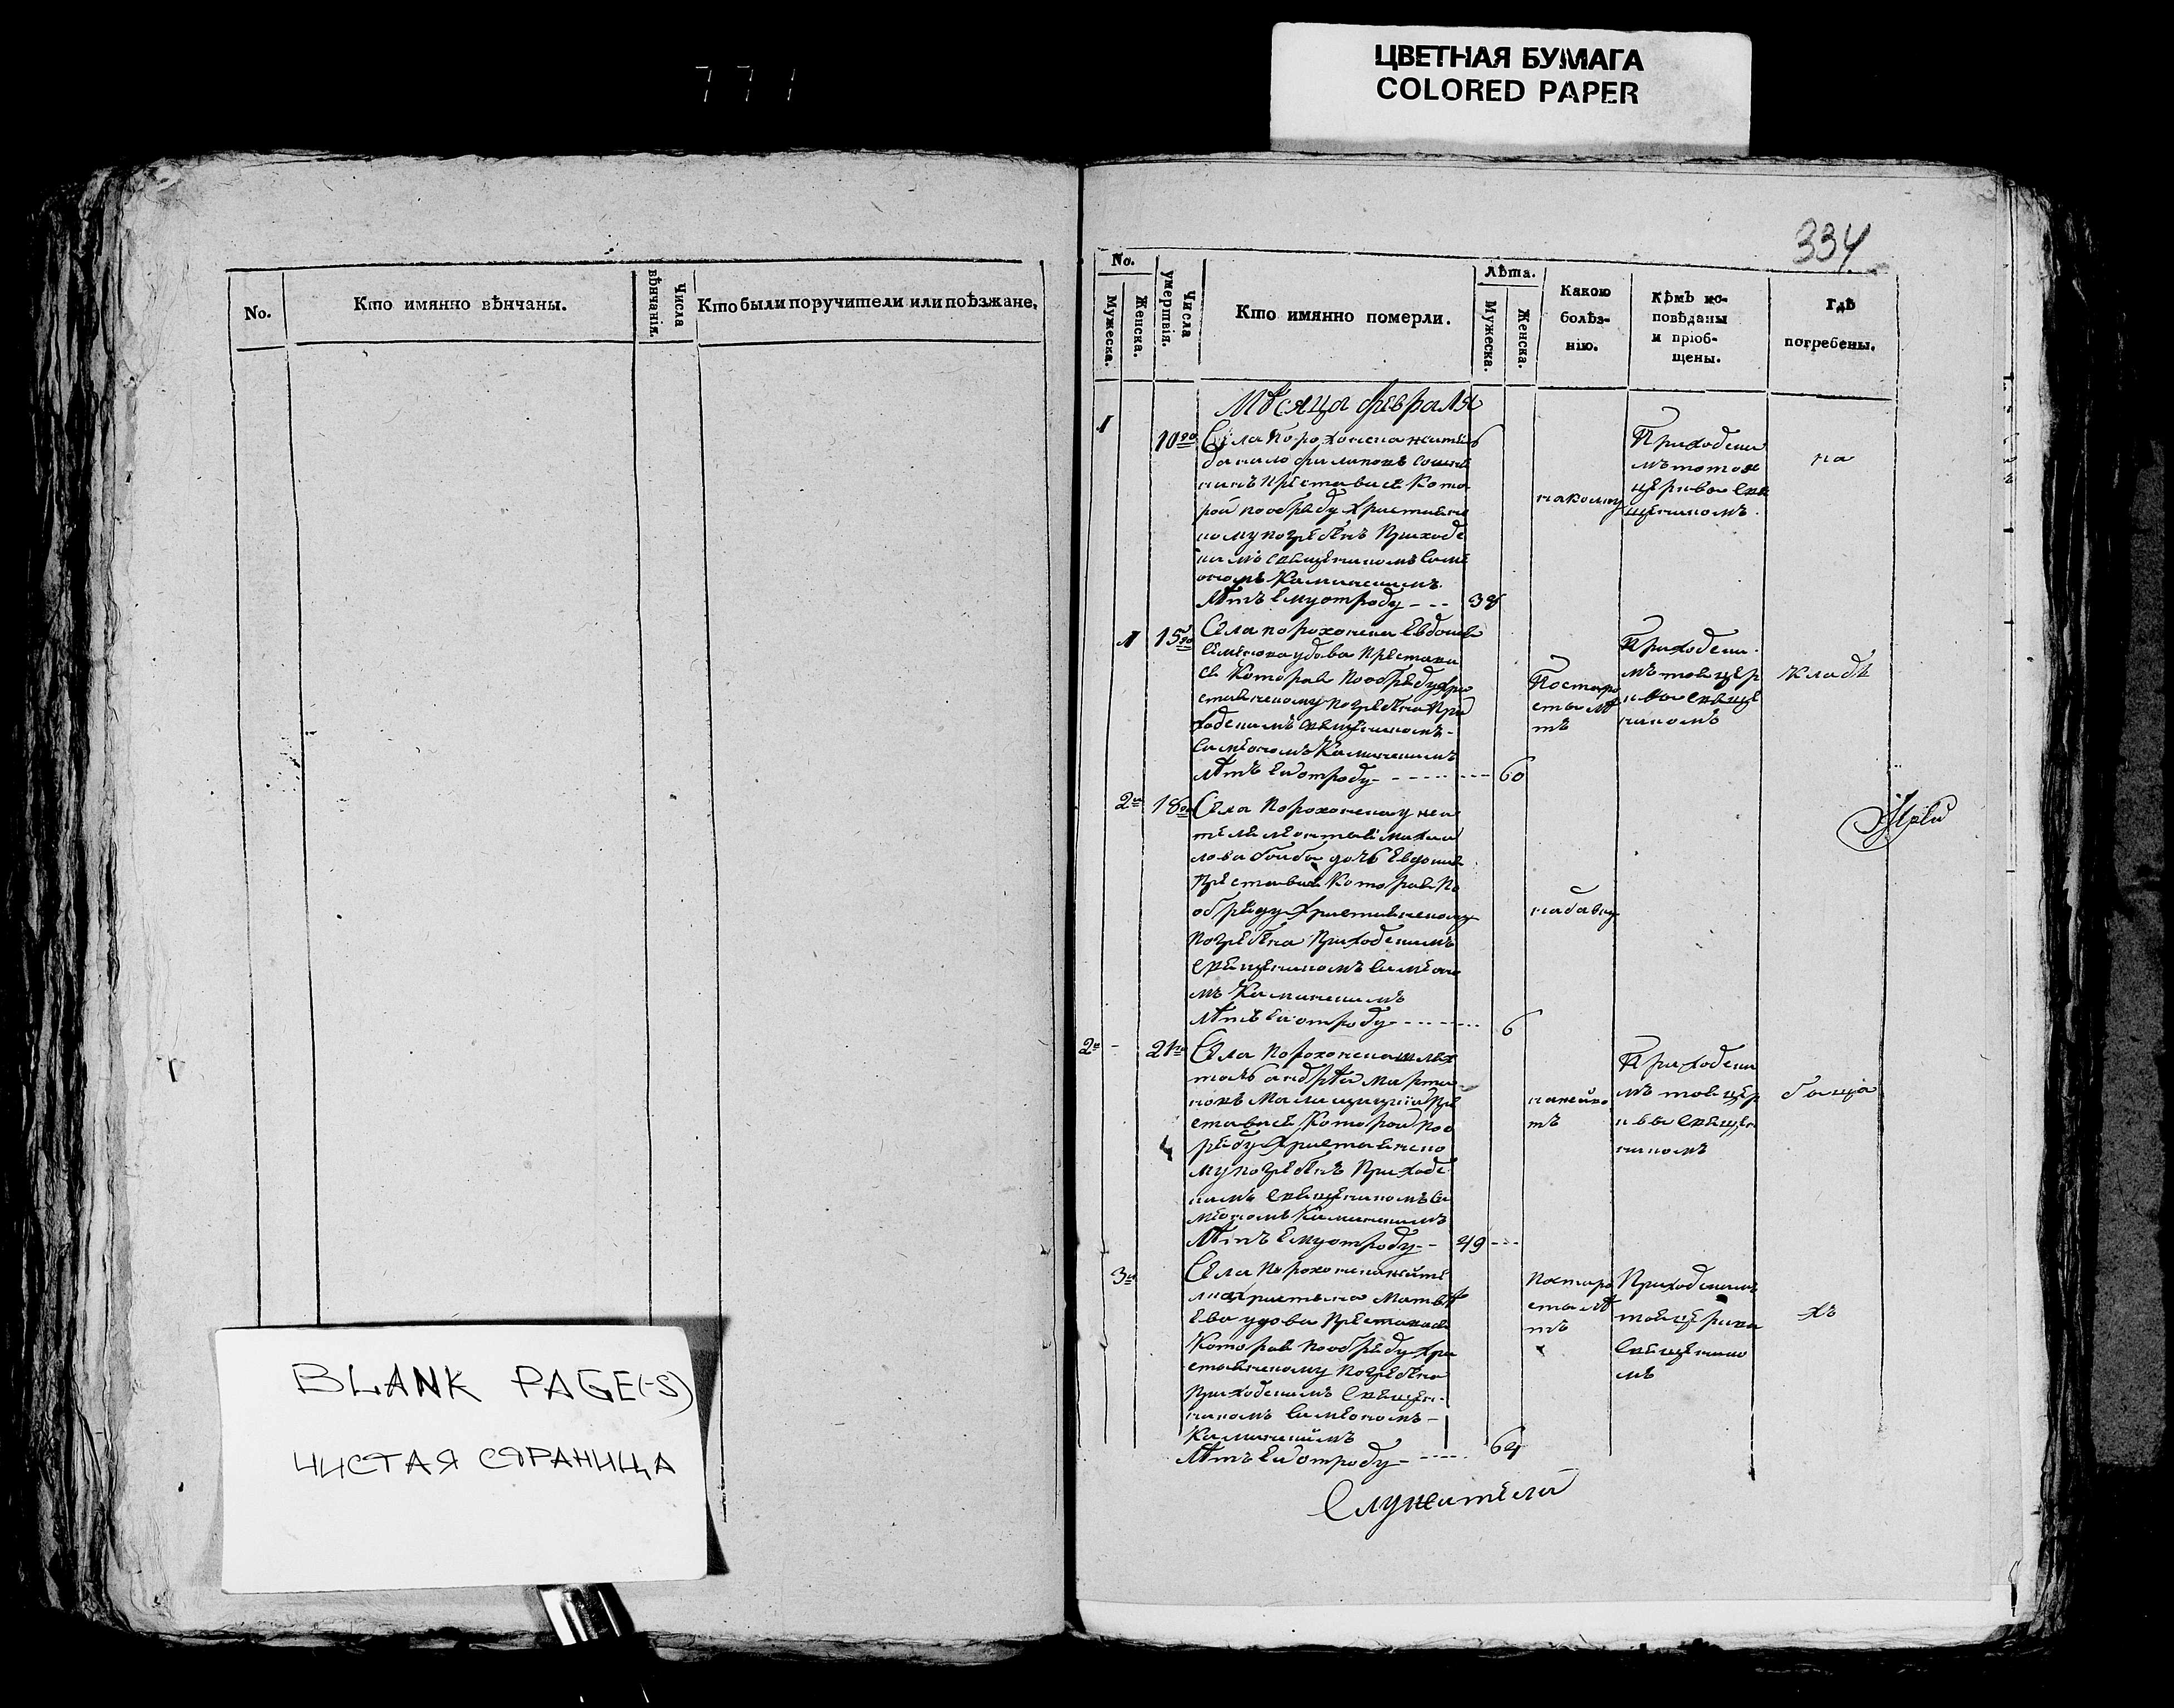 771
ЦВЕТНАЯ БУМАГА
COLORED PAPER
No.
Кто имянно вѣнчаны.
Числа вѣнчанія.
Кто были поручители или поѣзжане.
BLANK PAGE(-S)
ЧИСТАЯ СТРАНИЦА
334
No.
Мужеска.
Женска.
Числа умертвія.
Кто имянно померли.
Лѣта.
Мужеска.
Женска.
Какою болѣз-
нію.
Кѣмъ ис-
повѣданы
и пріоб-
щены.
Гдѣ
погребены.
Мѣсяца февраля
1
10го
Села Порохонска жите
рой пообряду християнс
кому погребенъ Приходс
кимъ священикомъ Симе
ономъ Каминскимъ
Лѣтъ ему отроду - - - 38
Приходски
мъ тоюж
церкви свя
щеникомъ
на
1 15го
Села порохонска Евдокия
удова Престави
ся Которая пообряду хри
стиянскому погребена При
ходскимъ священикомъ
Симеономъ Каминскимъ
Лѣтъ ей отроду - - - 60
Постаро
сты лѣ
тъ
Приходски
мъ тоя цер
кви свяще
никомъ
кладь
2я 18го
Села Порохонска у жи
теля Леонтия Михаи
дочь Евдокия
Преставися Которая по
обряду Християнскому
погребена Приходскимъ
священикомъ Симеоно
мъ Каминскимъ
Лѣтъ ей отроду - - - 6
2й - 21го
Села Порохонска шлях
тичь андрѣй Марти
Пре
ставися Которой поо
ряду Християнско
му погребенъ Приходс
кимъ священикомъ Си
меономъ Каминскимъ
Лѣтъ ему отроду - - 49 - - -
Приходски
мъ тоя цер
кви священ
никомъ
бища
3я
Села Порохонска жите
Матвѣ
ева удова Преставися
Которая пообряду хри
стиянскому погребена
Приходскимъ священ
никомъ Симеономъ -
Каминскимъ
Лѣтъ ей отроду - - - 64
Постаро
сты лѣ
тъ
Приходскимъ
тоя церкви
священико
мъ
хъ
Служители